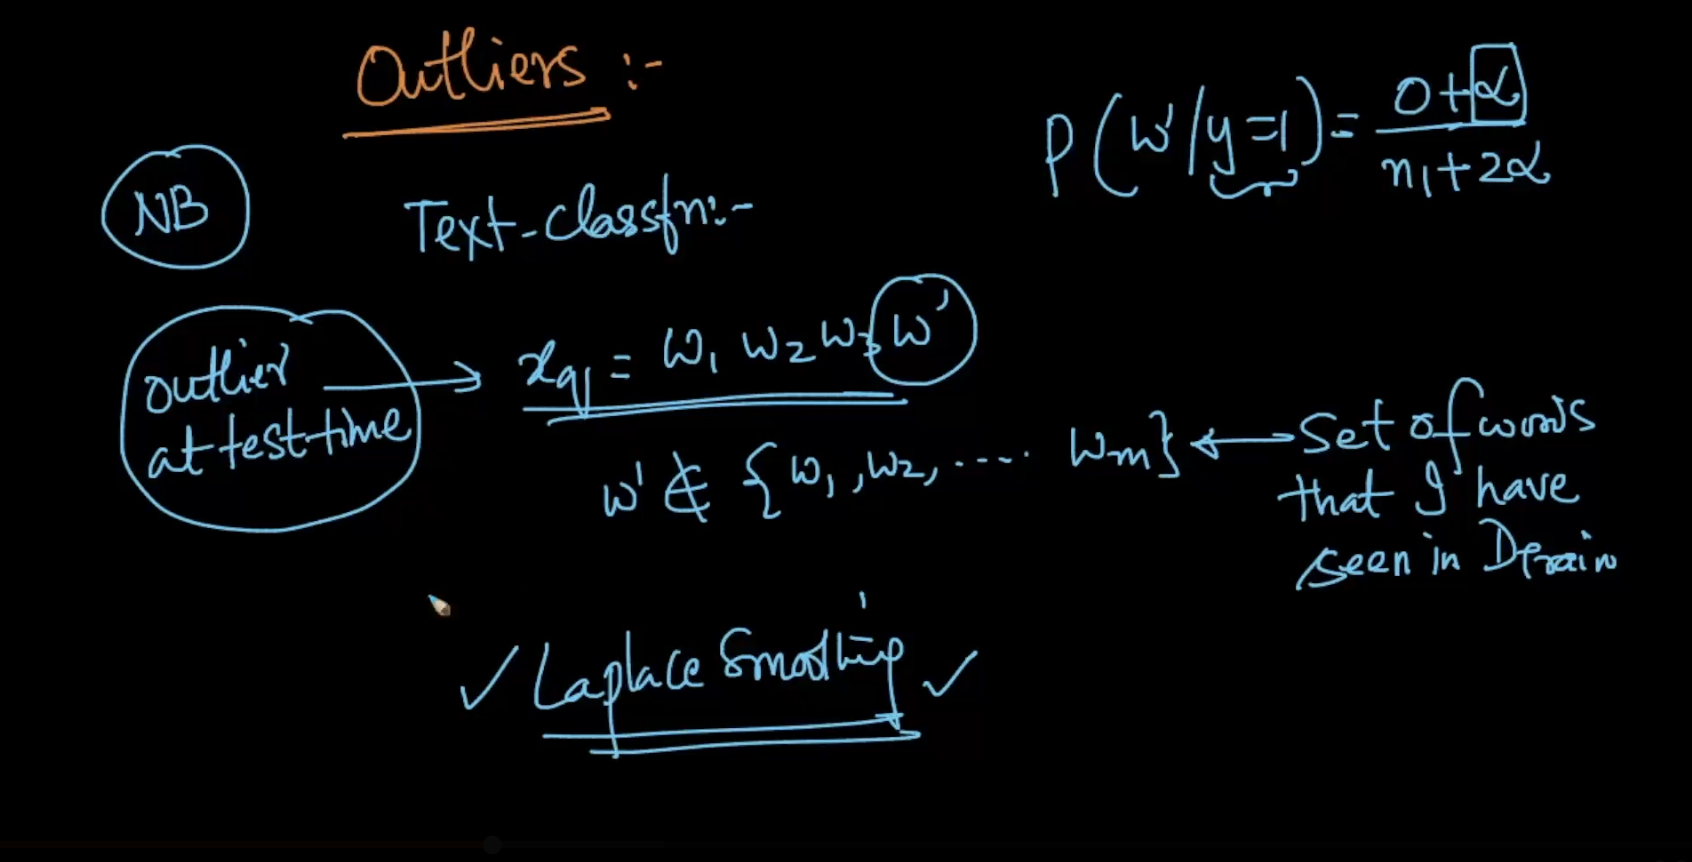 Outliers :-
P(w'/y=1) = 0+α / n₁+2α
NB
Text-classfn:-
outlier
at test-time
→ xq = w₁ w₂ w₃ w'
w' ∉ {w₁, w₂, ..... wm} ← Set of words
that I have
seen in Dtrain
✓ Laplace Smoothing ✓